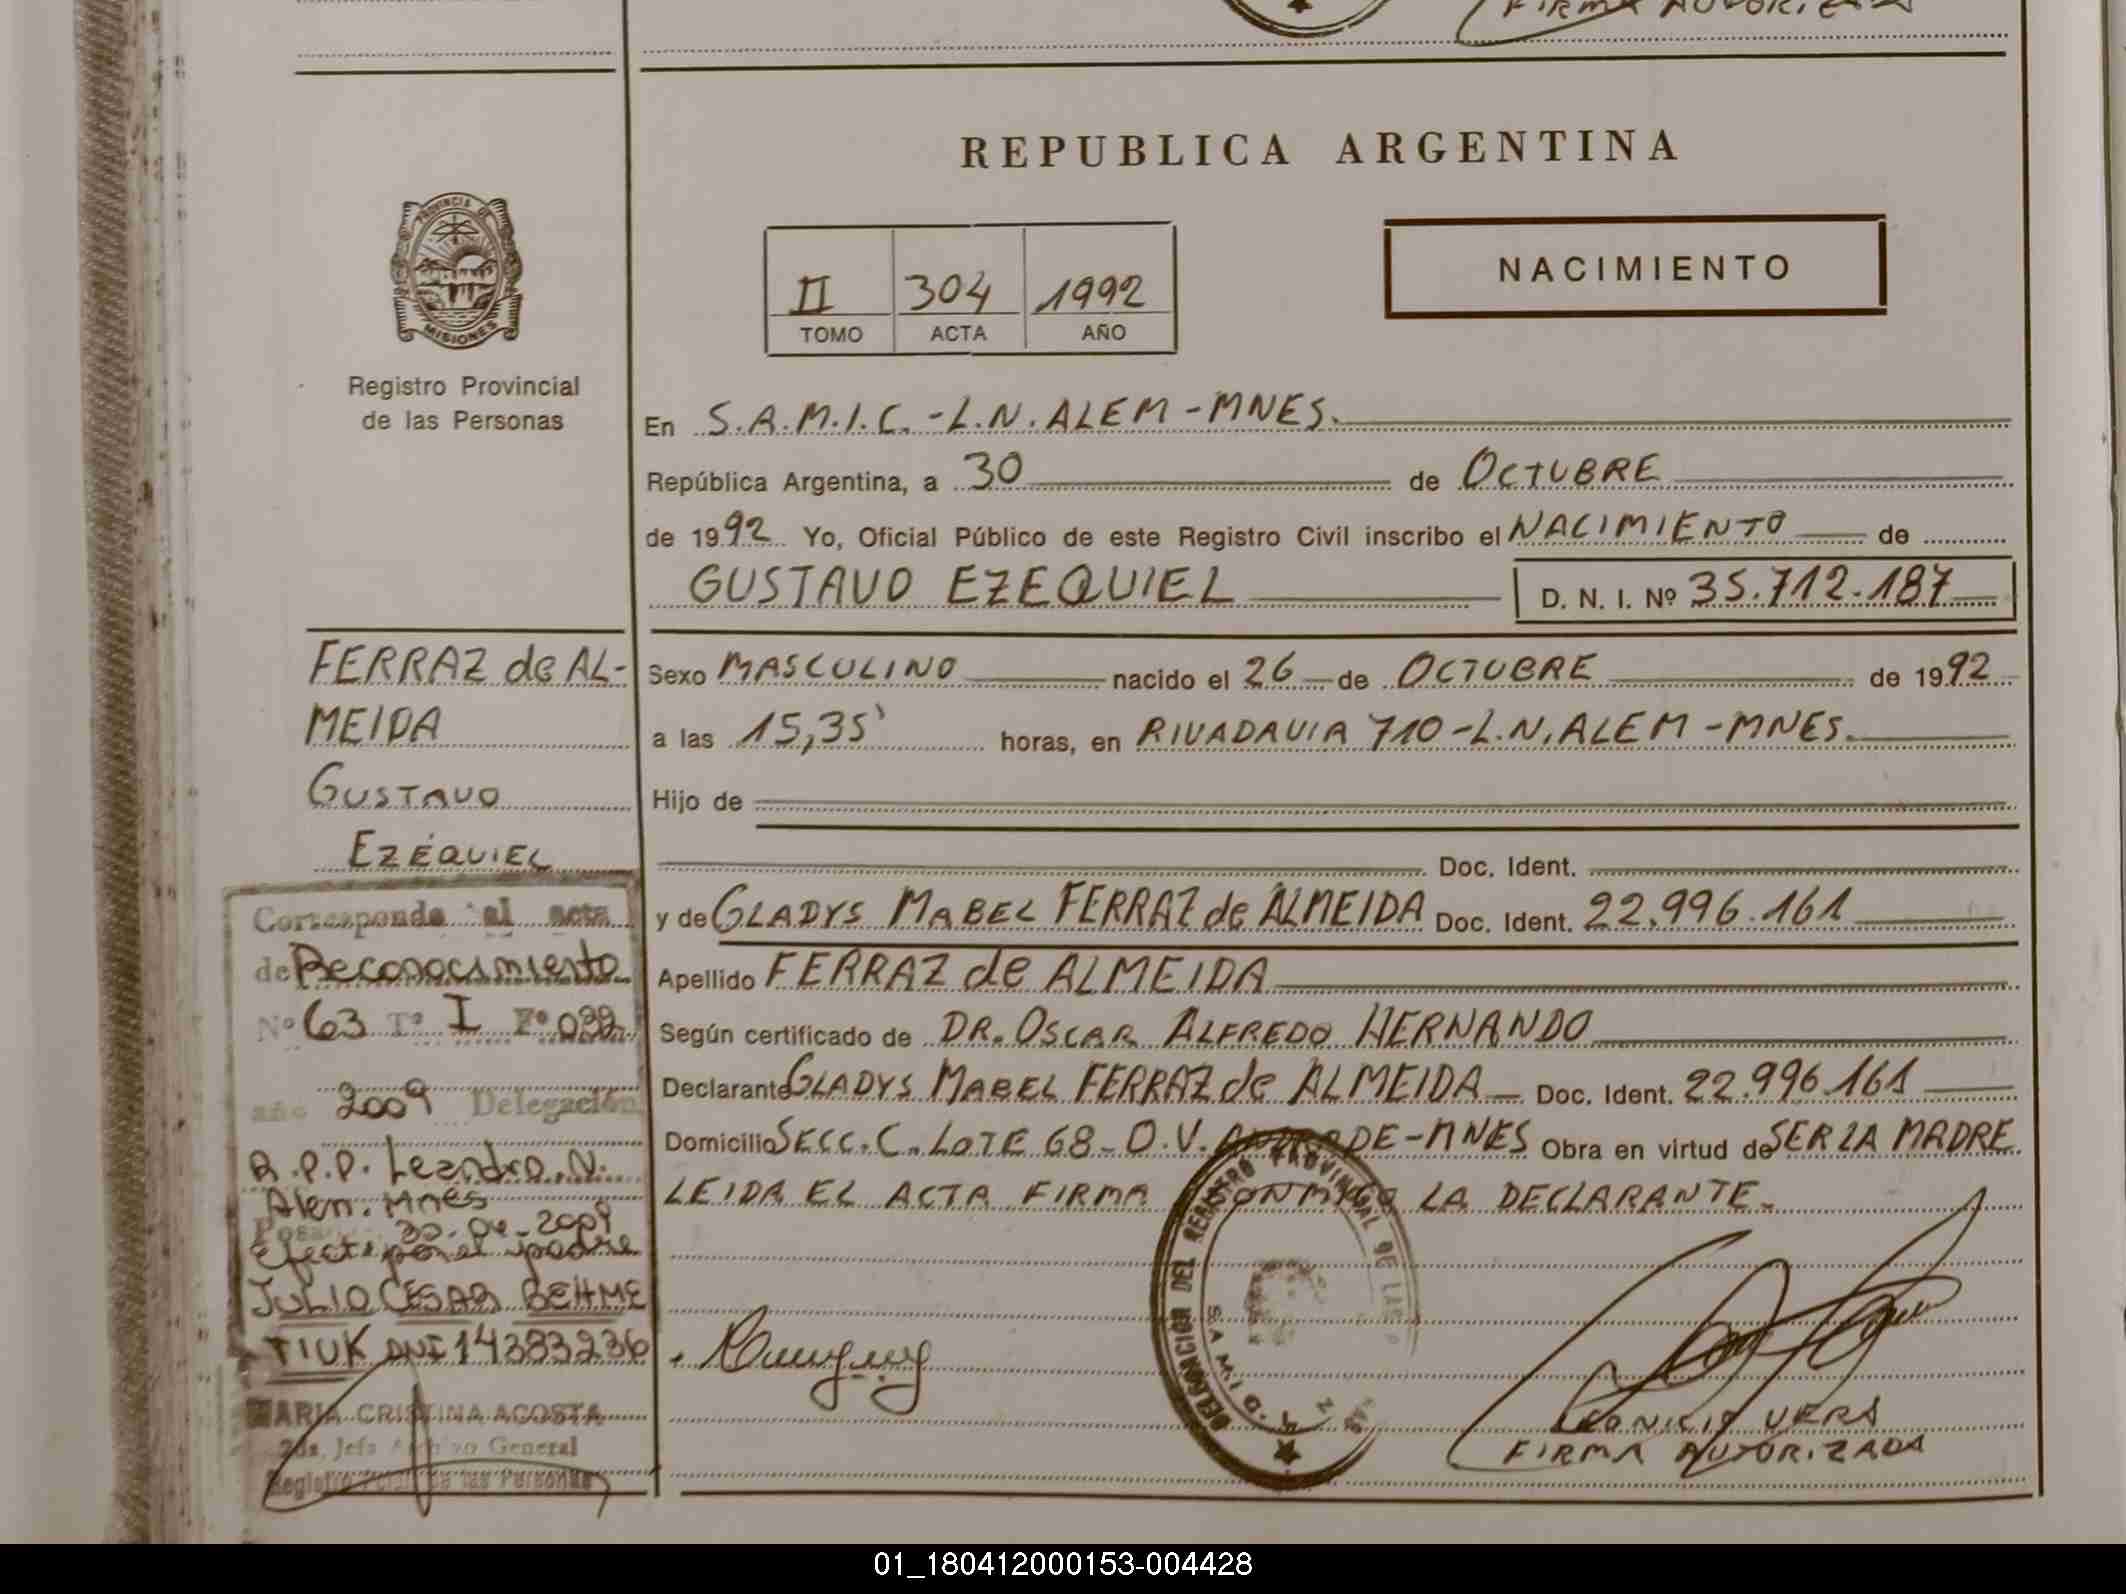 FIRMA AUTORIZADA
REPUBLICA ARGENTINA
PROVINCIA DE
MISIONES
Registro Provincial
de las Personas
II 304 1992
TOMO ACTA AÑO
NACIMIENTO
En S.A.M.I.C.-L.N.ALEM-MNES.
República Argentina, a 30 de OCTUBRE
de 1992 Yo, Oficial Público de este Registro Civil inscribo el NACIMIENTO de
GUSTAVO EZEQUIEL D. N. I. Nº 35.712.187
FERRAZ de AL-
MEIDA
GUSTAVO
EZEQUIEL
Sexo MASCULINO nacido el 26 de OCTUBRE de 1992
a las 15,35' horas, en RIVADAVIA 710-L.N.ALEM-MNES.
Hijo de
Doc. Ident.
y de GLADYS MABEL FERRAZ de ALMEIDA Doc. Ident. 22.996.161
Apellido FERRAZ de ALMEIDA
Según certificado de DR. OSCAR ALFREDO HERNANDO
Declarante GLADYS MABEL FERRAZ de ALMEIDA Doc. Ident. 22.996.161
Domicilio SECC.C. LOTE 68-O.V. ANDRADE-MNES Obra en virtud de SER LA MADRE
LEIDA EL ACTA FIRMA CONMIGO LA DECLARANTE.
Corresponde al acta
de Reconocimiento
Nº 63 Tº I Fº
año 2009 Delegación
R.P.P. Leandro N.
Alem. Mnes
30-04-2009
Efect. por el padre
JULIO CESAR BEHME
TIUK DNI 14383236
MARIA CRISTINA ACOSTA
2da. Jefa Archivo General
Registro Pcial. de las Personas
DELEGACION DEL REGISTRO PROVINCIAL DE LAS P
S.A.M.I.C.
LEONICIO VERA
FIRMA AUTORIZADA
01_180412000153-004428